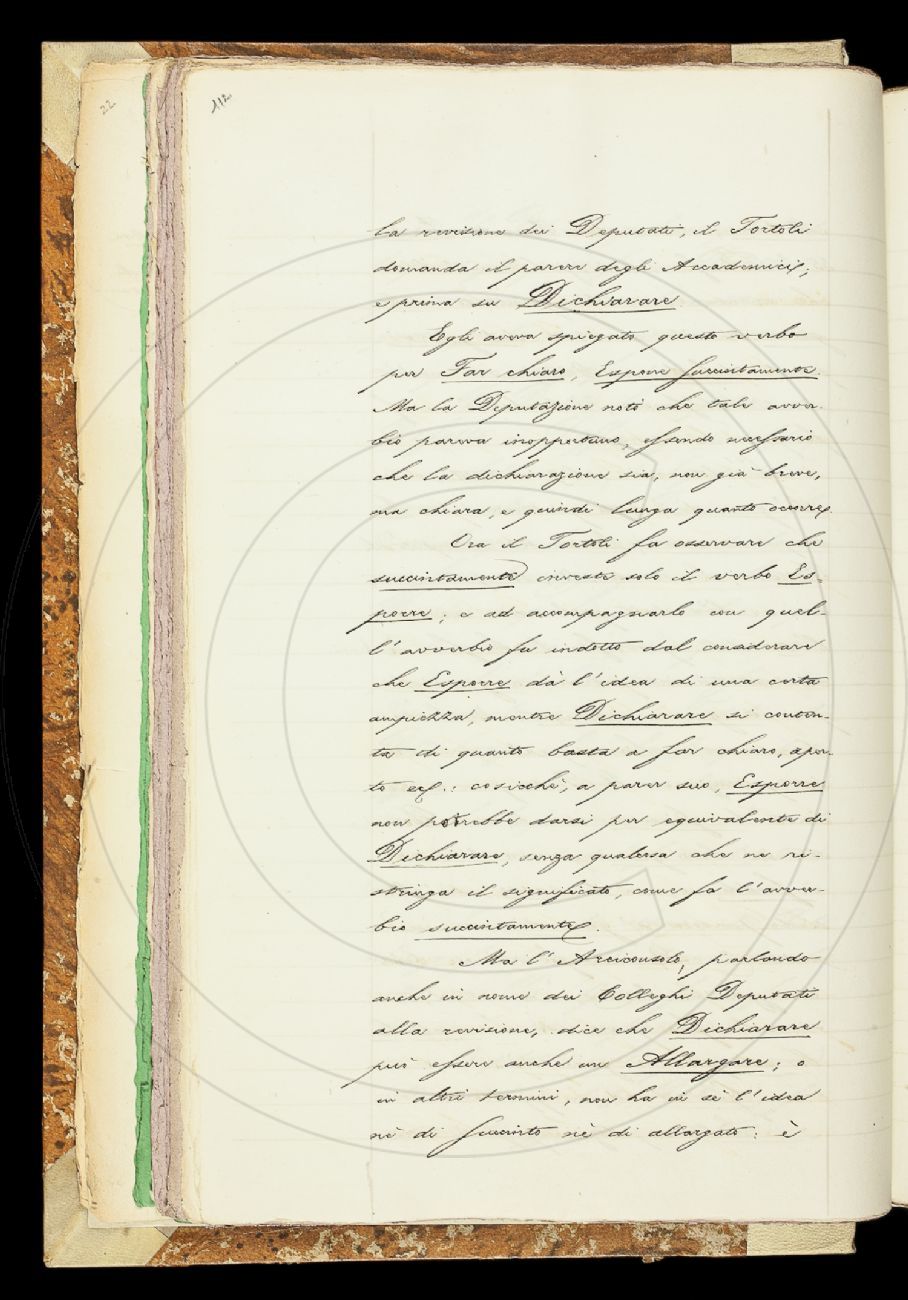 22
112
la revisione dei Deputati, il Tortoli
domanda il parere degli Accademici;
e prima su Dichiarare
Egli aveva spiegato questo verbo
per Far chiaro, Esporre succintamente.
Ma la Deputazione notò che tale avver-
bio pareva inopportuno, essendo necessario
che la dichiarazione sia, non già breve,
ma chiara, e quindi lunga quanto occorre.
Ora il Tortoli fa osservare che
succintamente investe solo il verbo Es-
porre; e ad accompagnarlo con quel-
l'avverbio fu indotto dal considerare
che Esporre dà l'idea di una certa
ampiezza, mentre Dichiarare si conten-
ta di quanto basta a far chiaro, aper-
to ec.: cosicchè, a parer suo, Esporre
non potrebbe darsi per equivalente di
Dichiarare, senza qualcosa che ne ri-
stringa il significato, come fa l'avver-
bio succintamente.
Ma l'Arciconsolo, parlando
anche in nome dei Colleghi Deputati
alla revisione, dice che Dichiarare
può essere anche un Allargare; o
in altri termini, non ha in sè l'idea
nè di succinto nè di allargato: è